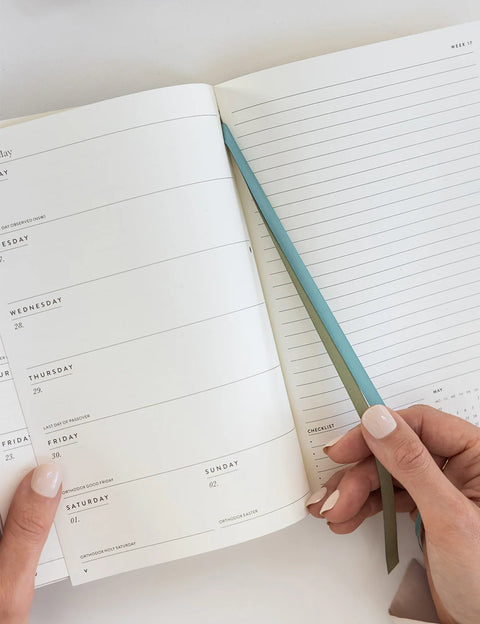 WEEK 17
May
AY
DAY OBSERVED
ESDAY
7.
WEDNESDAY
28.
THURSDAY
29.
LAST DAY OF PASSOVER
FRIDAY
30.
ORTHODOX GOOD FRIDAY
SATURDAY
01.
ORTHODOX HOLY SATURDAY
SUNDAY
02.
ORTHODOX EASTER
FRIDAY
23.
CHECKLIST
MAY